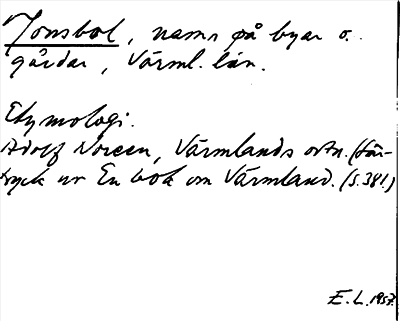 Jonsbol, namn på byar o.
gårdar, Värml. län.
Etymologi.
Adolf Noreen, Värmlands ortn. (Sär-
tryck ur En bok om Värmland. (S. 381.)
E.L. 1957.